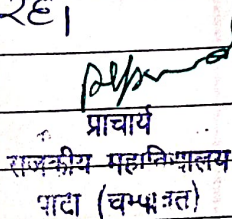 रहे।
प्राचार्य
राजकीय महाविद्यालय
पाटी (चम्पावत)